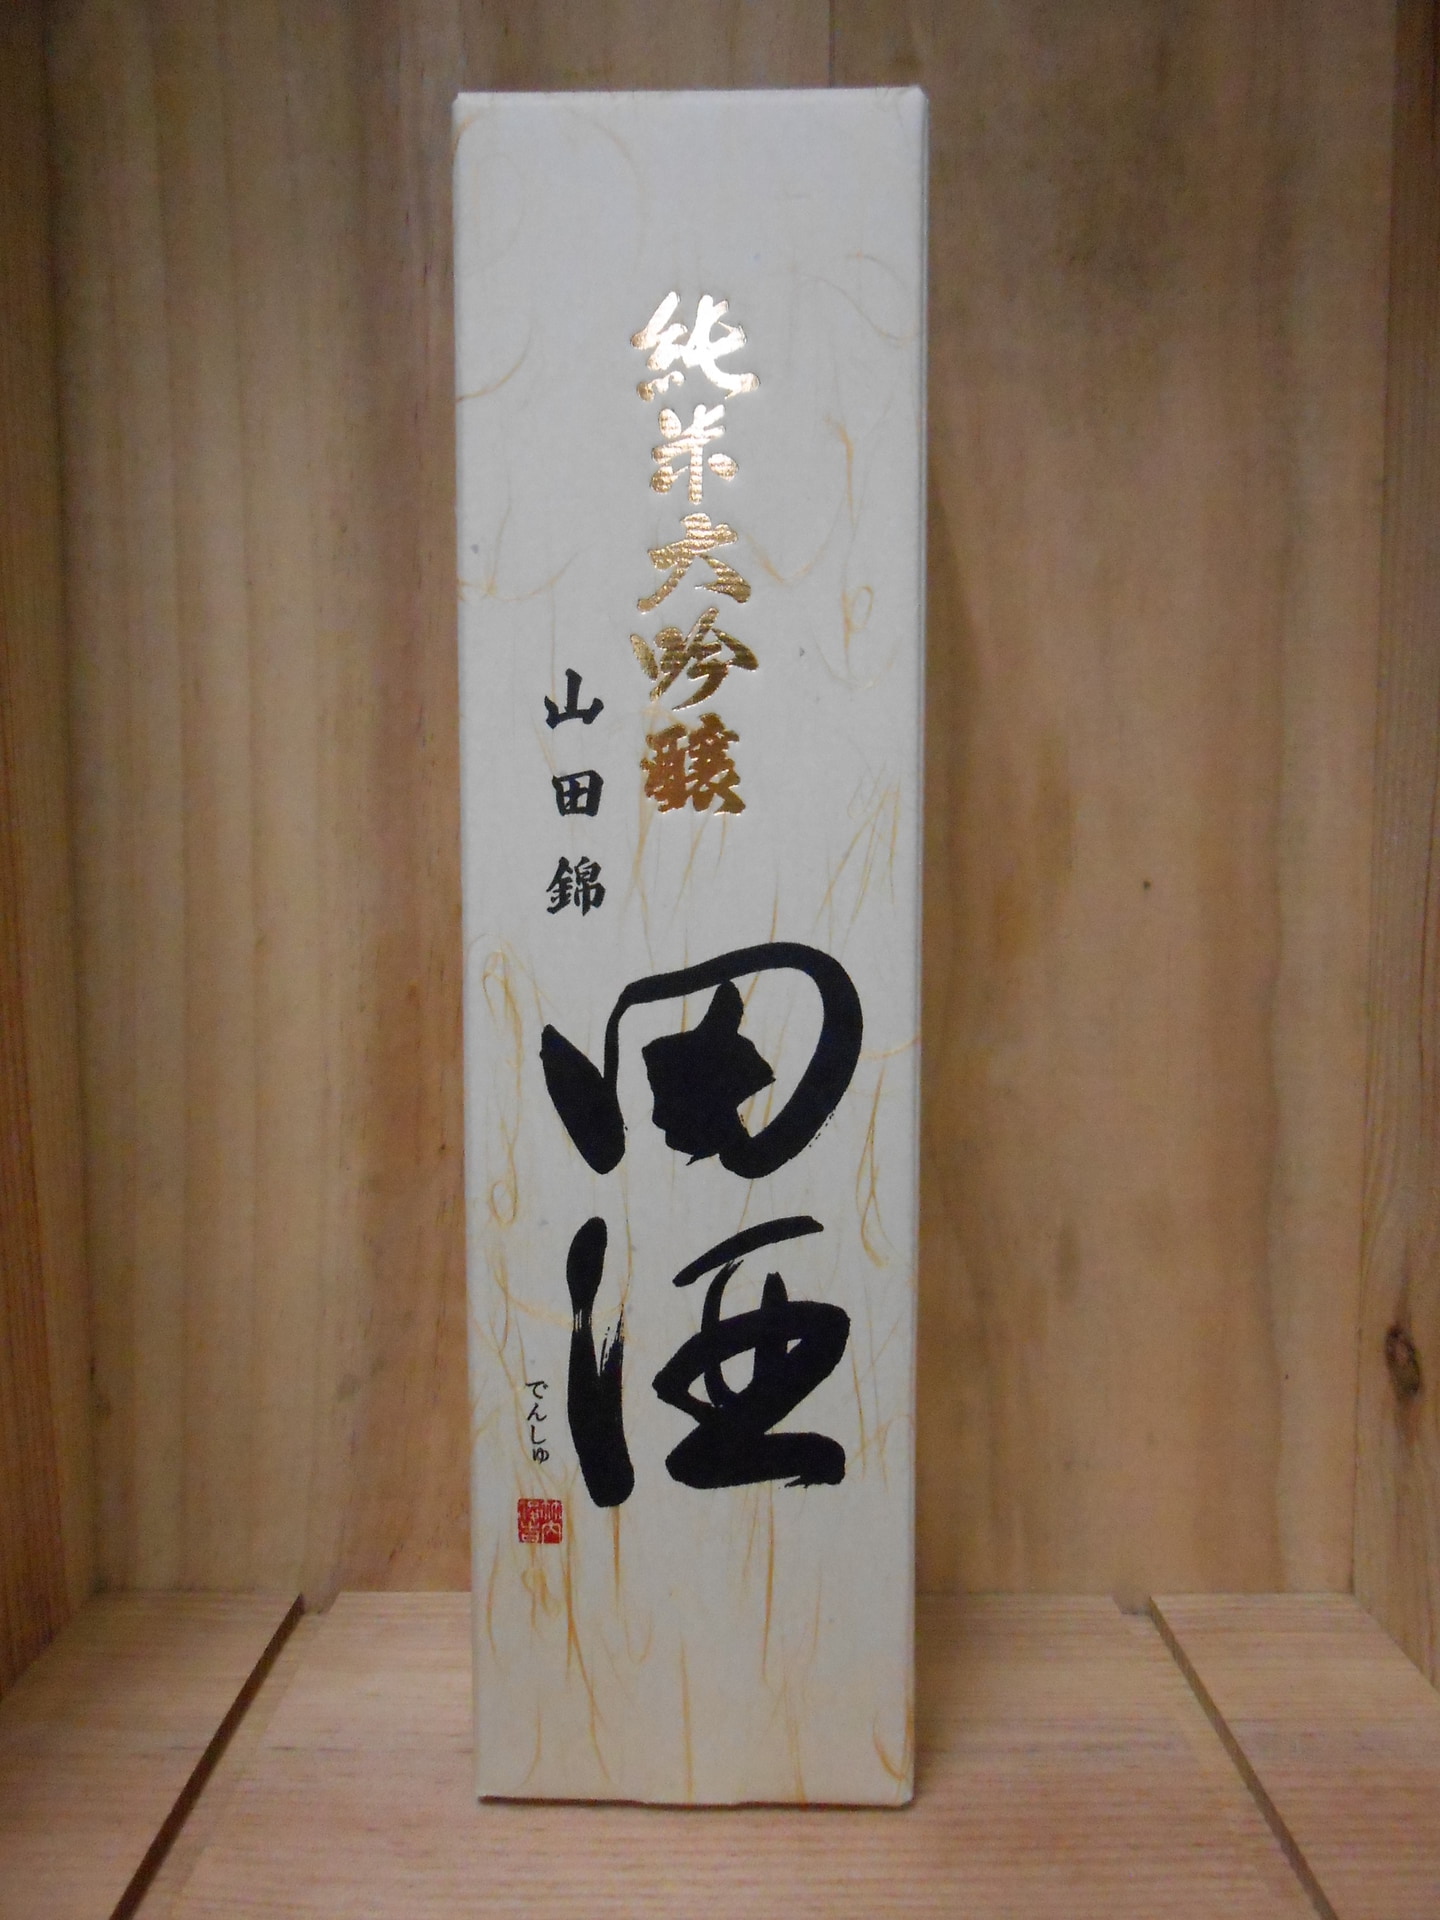 純米大吟醸
山田錦
田酒
でんしゅ